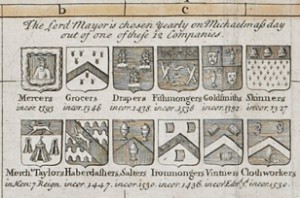 b c
The Lord Mayor is chosen Yearly on Michaelmaſs day
out of one of theſe 12 Companies.
Mercers Grocers Drapers Fiſhmongers Goldſmiths Skinners
incor. 1393 incor. 1346 incor. 1438 incor. 1536 incor. 1392 incor. 1327
Merch.t Taylors Haberdaſhers Salters Ironmongers Vintners Clothworkers
in Hen: 7 Reign incor. 1447 incor. 1530 incor. 1436 incor 1530